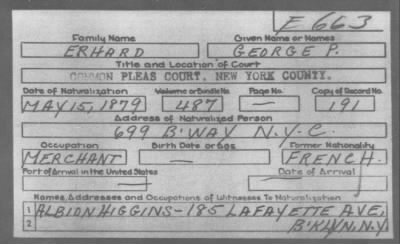 E 663
Family Name Given Name or Names
ERHARD GEORGE P.
Title and Location of Court
COMMON PLEAS COURT, NEW YORK COUNTY.
Date of Naturalization Volume or Bundle No. Page No. Copy of Record No.
MAY 15, 1879 487 — 191
Address of Naturalized Person
699 B'WAY N.Y.C.
Occupation Birth Date or Age Former Nationality
MERCHANT — FRENCH.
Port of Arrival in the United States Date of Arrival
— —
Names, Addresses and Occupations of Witnesses To Naturalization
1 ALBION HIGGINS-185 LAFAYETTE AVE,
2 B'KLYN.N.Y.